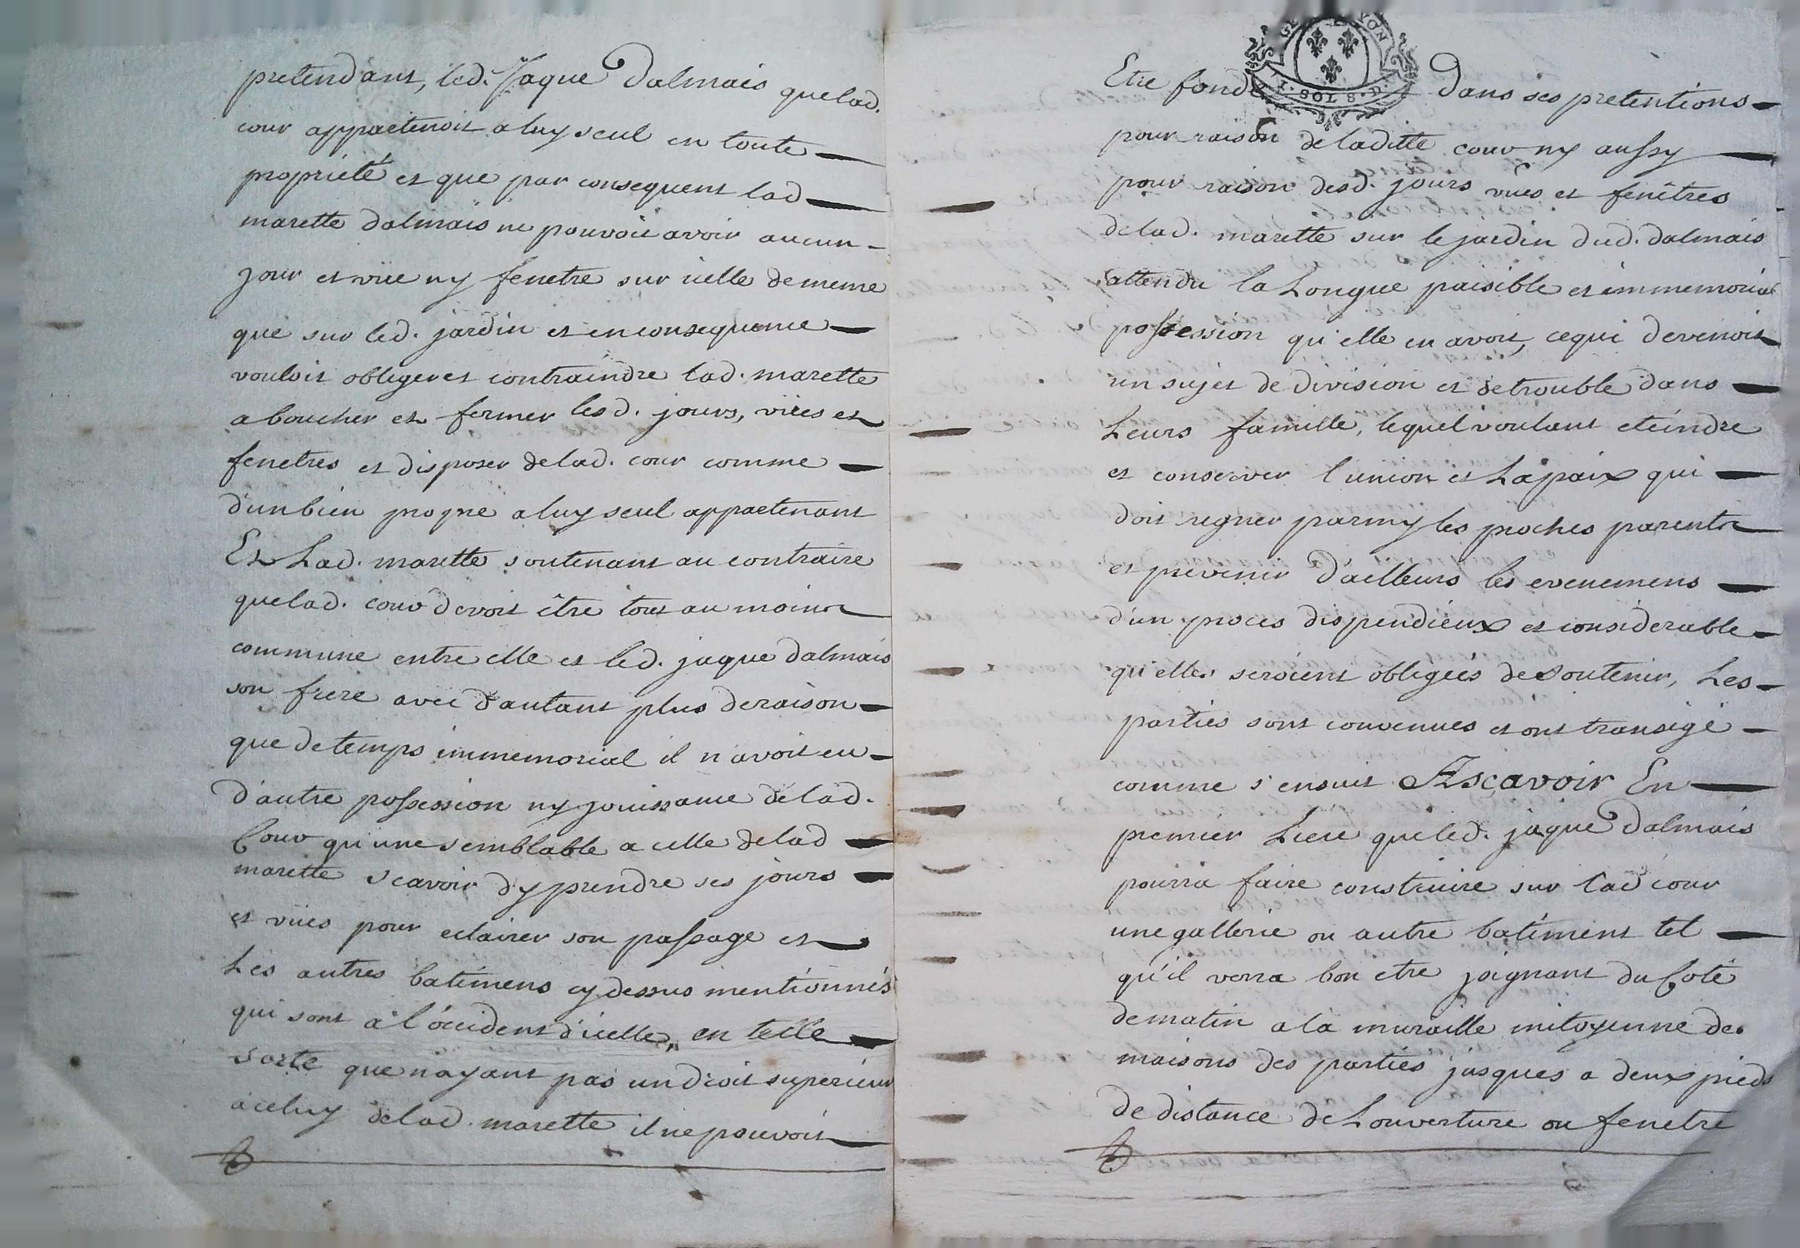 pretendant, led. Jaque Dalmais quelad.
cour appartenoit a luy seul en toute
propriété et que par consequent lad
marette dalmais ne pouvoit avoir aucun
jour et vüe ny fenetre sur icelle de meme
que sur led. jardin et en consequence
vouloit obliger et contraindre lad. marette
a boucher et fermer lesd. jours, vües et
fenetres et disposer delad. cour comme
d'un bien propre a luy seul appartenant
Et Lad. marette soutenant au contraire
quelad. cour devoit être tout au moins
commune entre elle et led. jaque dalmais
son frere avec d'autant plus deraison
que de temps immemorial il n'avoit eu
d'autre possession ny jouissance delad.
Cour qu'une semblable a celle delad
marette scavoir d'y prendre ses jours
et vües pour eclairer son passage et
Les autres batimens cy dessus mentionnés
qui sont a l'occident d'icelle, en telle
sorte que n'ayant pas un droit superieur
a celuy delad. marette il ne pouvoit
GE LYON
I · SOLS · D
Etre fondé dans ses pretentions
pour raison de laditte cour ny aussy
pour raison desd. jours vües et fenêtres
delad. marette sur le jardin dud. dalmais
attendu la Longue paisible et immemorial
possession qu'elle en avoit, cequi devenoit
un sujet de division et de trouble dans
Leurs famille, lequel voulant eteindre
et conserver l'union et La paix qui
doit regner parmy les proches parents
et prevenir d'ailleurs les evenemens
d'un proces dispendieux et considerable
qu'elles seroient obligées de soutenir, Les
parties sont convenues et ont transigé
comme s'ensuit Ascavoir En
premier Lieu que led. jaque Dalmais
pourra faire construire sur lad cour
une gallerie ou autre batiment tel
qu'il verra bon etre joignant du Coté
de matin a la muraille mitoyenne des
maisons des parties jusques a deux pieds
de distance de Louverture ou fenetre